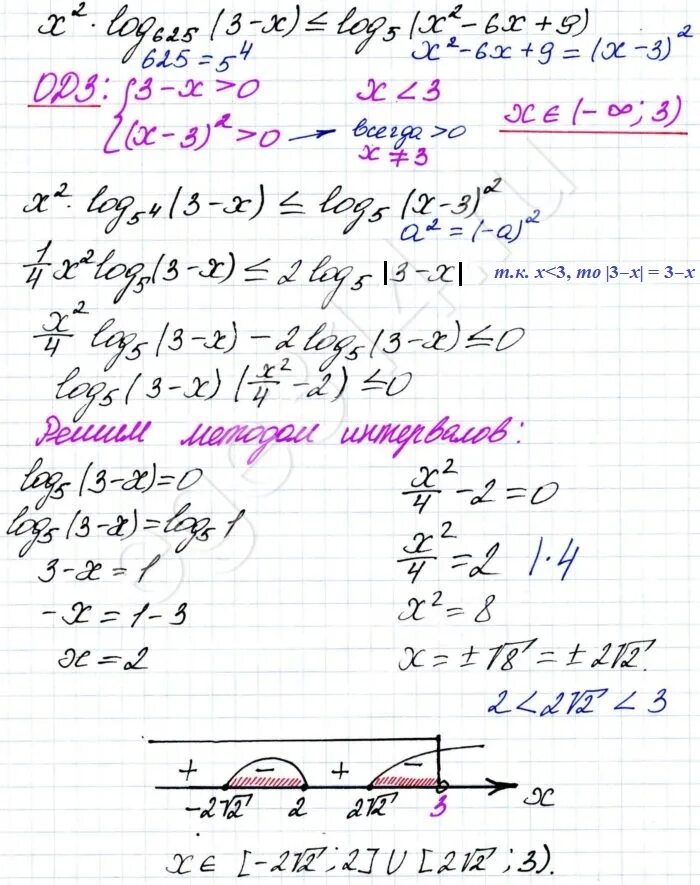 x² · log₆₂₅ (3-x) ≤ log₅ (x²-6x+9)
625 = 5⁴ x²-6x+9 = (x-3)²
ОДЗ: { 3-x>0 x<3
(x-3)²>0 → всегда >0 x∈(-∞; 3)
x ≠ 3
x² · log₅⁴ (3-x) ≤ log₅ (x-3)²
a² = (-a)²
1/4 x² log₅(3-x) ≤ 2 log₅ |3-x| т.к. x<3, то |3–x| = 3–x
x²/4 log₅ (3-x) - 2 log₅ (3-x) ≤ 0
log₅ (3-x) (x²/4 - 2) ≤ 0
Решим методом интервалов:
log₅ (3-x) = 0
log₅ (3-x) = log₅ 1
3-x = 1
-x = 1-3
x = 2
x²/4 - 2 = 0
x²/4 = 2 | · 4
x² = 8
x = ±√8 = ±2√2.
2 < 2√2 < 3
+ - + -
-2√2 2 2√2 3 x
x ∈ [-2√2; 2] ∪ [2√2; 3).